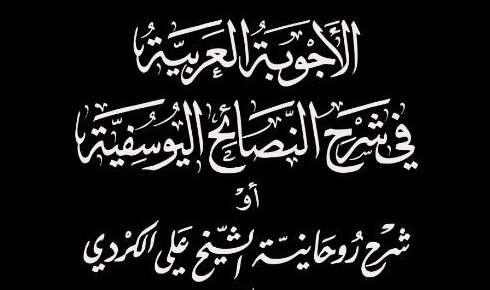 الأَجْوِبَةُ العَرَبِيَّةُ
فِي شَرْحِ النَّصَائِحِ اليُوسُفِيَّةِ
أَوْ
شَرْحُ رُوحَانِيَّة الشَّيْخ عَلِي الكُرْدِي